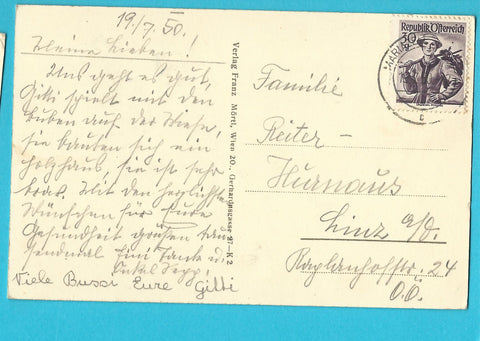 19/7. 50.
Meine Lieben!
Uns geht es gut,
Gitti spielt mit den
Buben auf der Wiese,
sie bauben sich ein
Holzhaus, sie ist sehr
brav. Mit den herzlichsten
Wünschen für Eure
Gesundheit grüßen tau
sendmal Eure Tante u.
Onkel Sepp!
Viele Bussi Eure Gitti
Verlag Franz Mörtl, Wien 20., Gerhardusgasse 27 - K 2
Republik Österreich
30
MARIA
c
Familie
Reiter-
Hurnaus
Linz a/D.
Kaplanhofstr. 24
O.Ö.